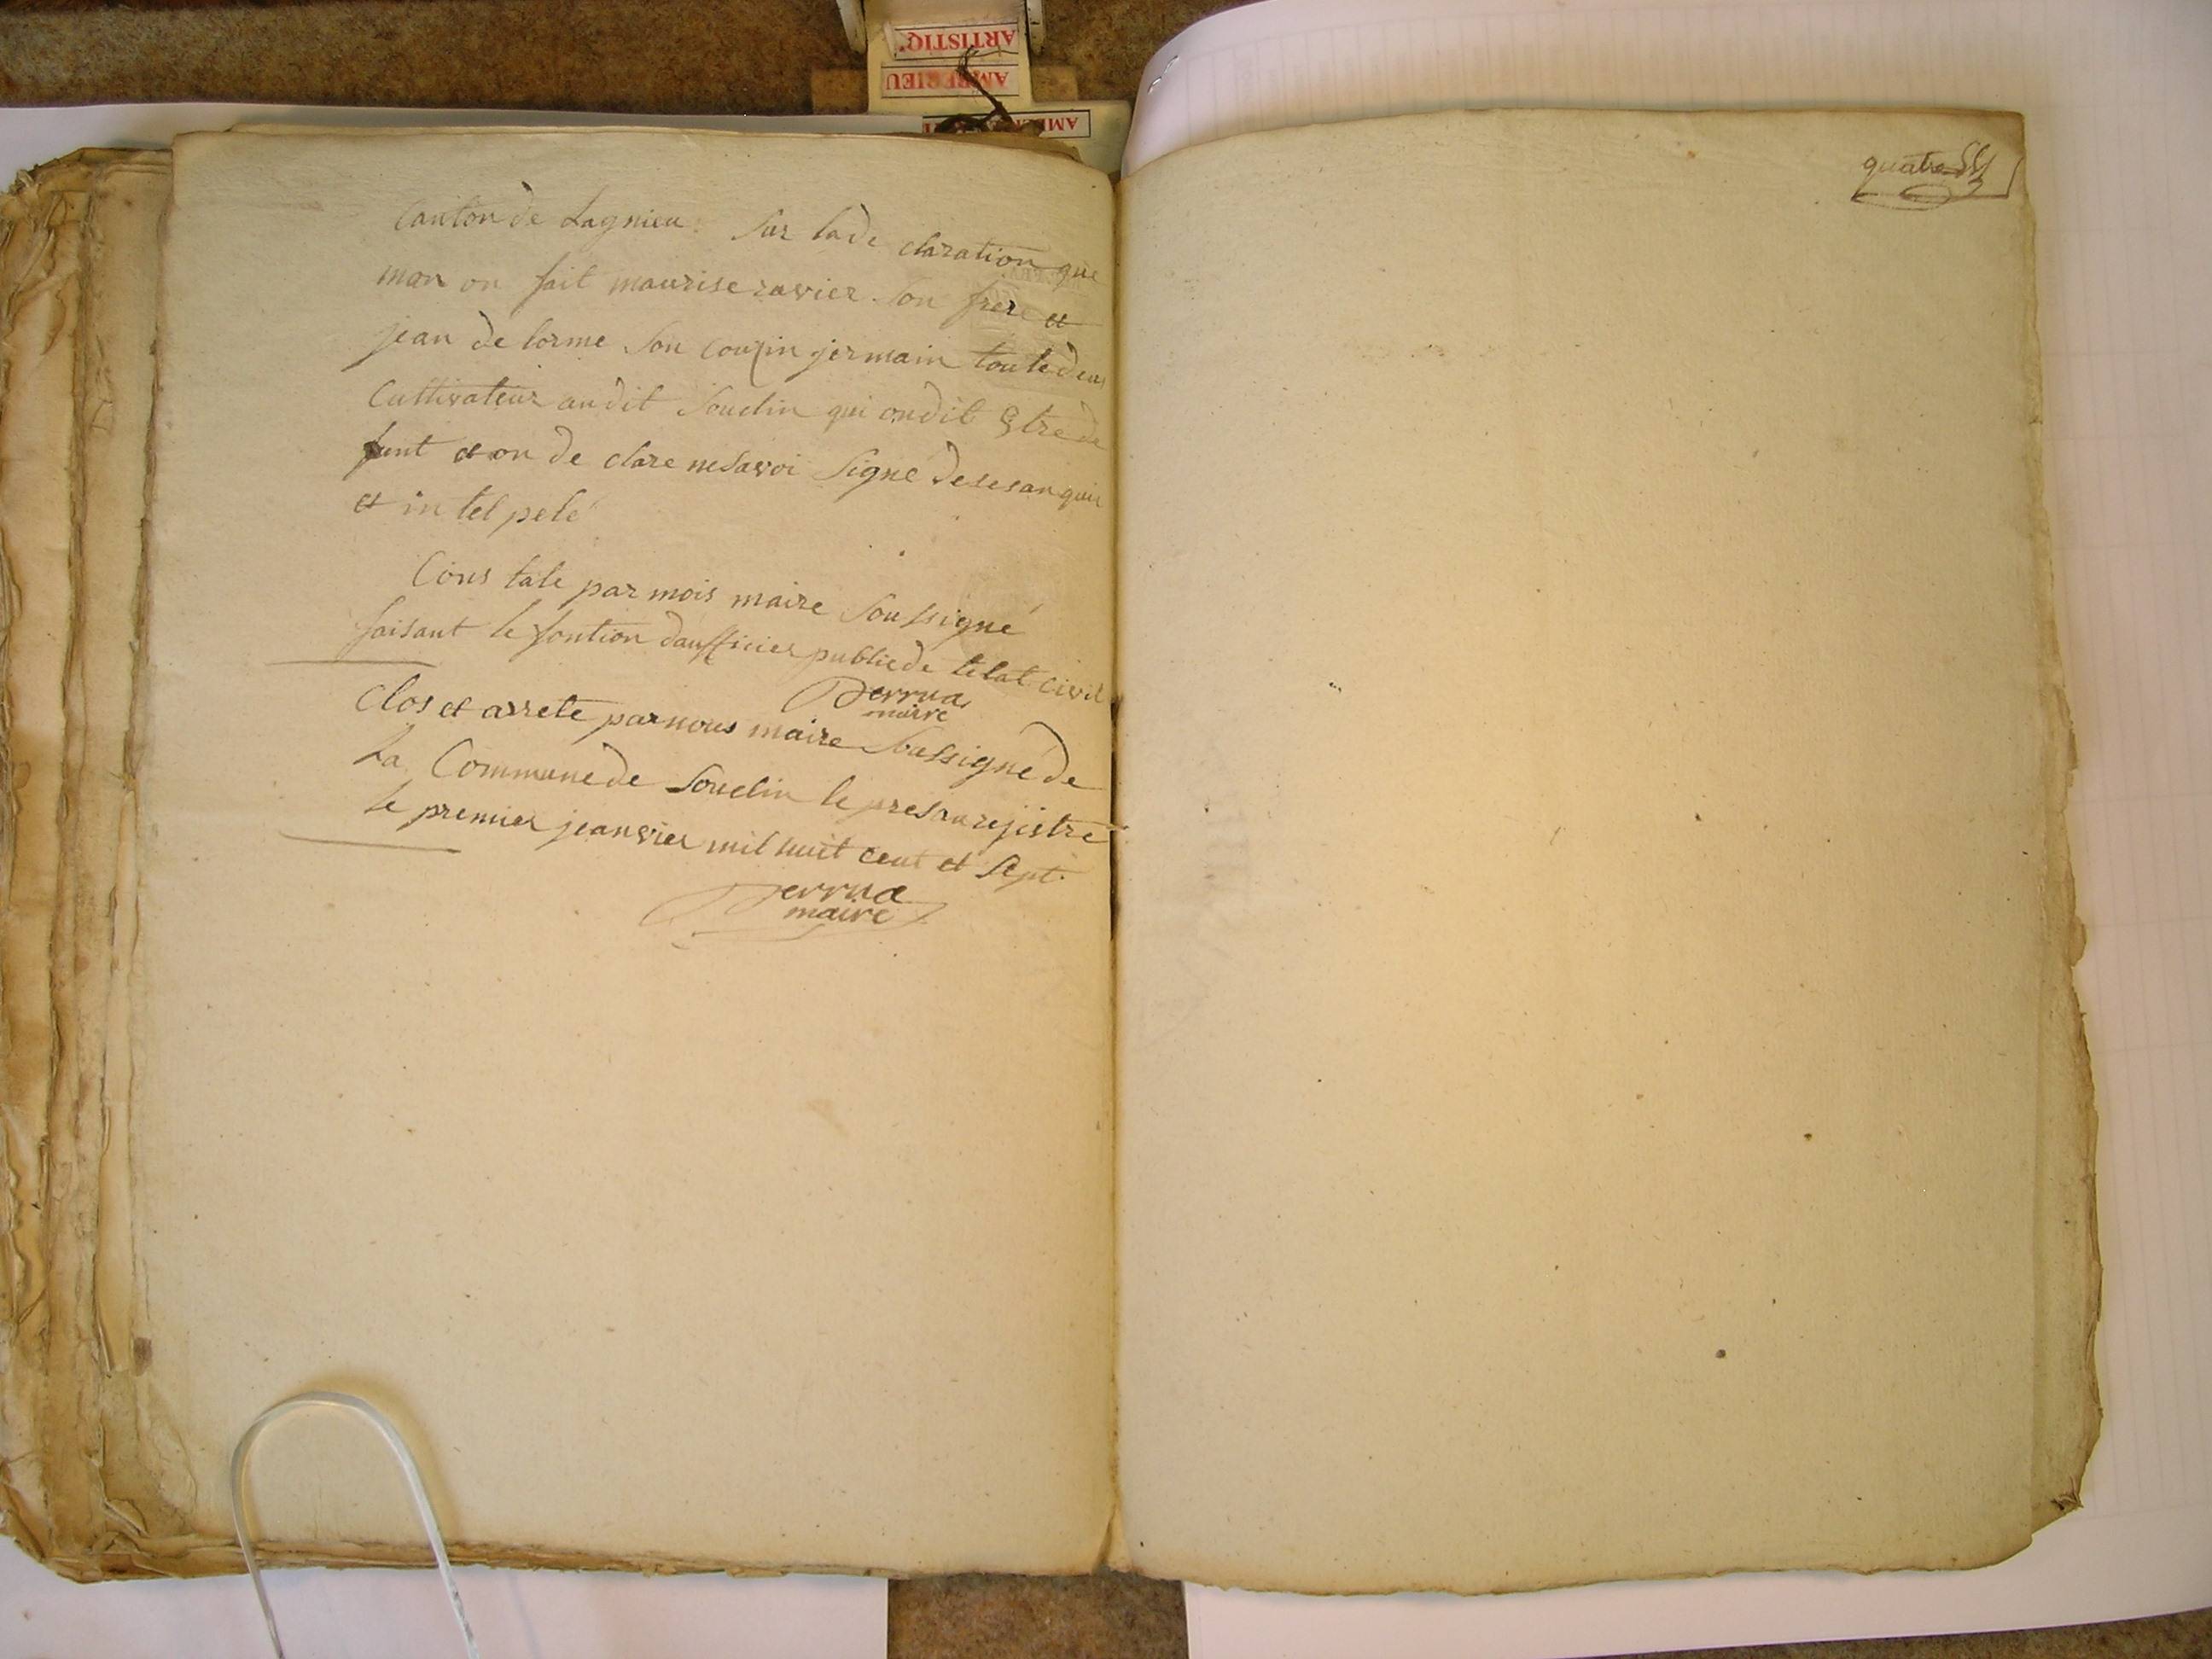 Canton de Lagnieu Sur la de claration que
man on fait maurise ravier son frere et
jean de lorme Son couzin jermain toute deux
Cultivateur audit Souclin qui ondit Etre de
funt et on de clare ne Savoi Signe de ses
et in tel pelé
Cons tate par mois maire Soussigné
faisant le fontion daufficier public de letat civil
Perrua
maire
Clos et arrete par nous maire Soussigné de
La Commune de Souclin le presan rejistre
le premier jeanvier mil huit cent et Sept.
Perrua
maire
quatre
ARTISTIQ
AMBERIEU